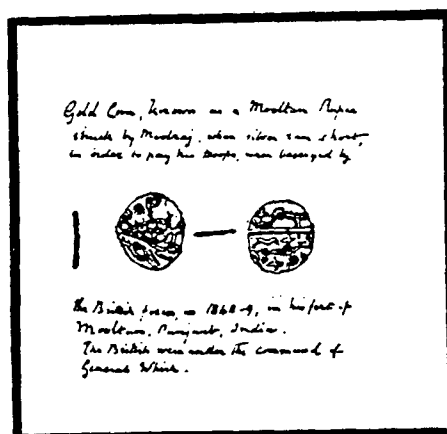 Gold Coin, known as a Mooltan Rupee
struck by Moolraj, when silver ran short,
in order to pay his troops, when besieged by
the British forces, in 1848-9, in his fort of
Mooltan, Punjaub, India.
The British were under the command of
General Whish.